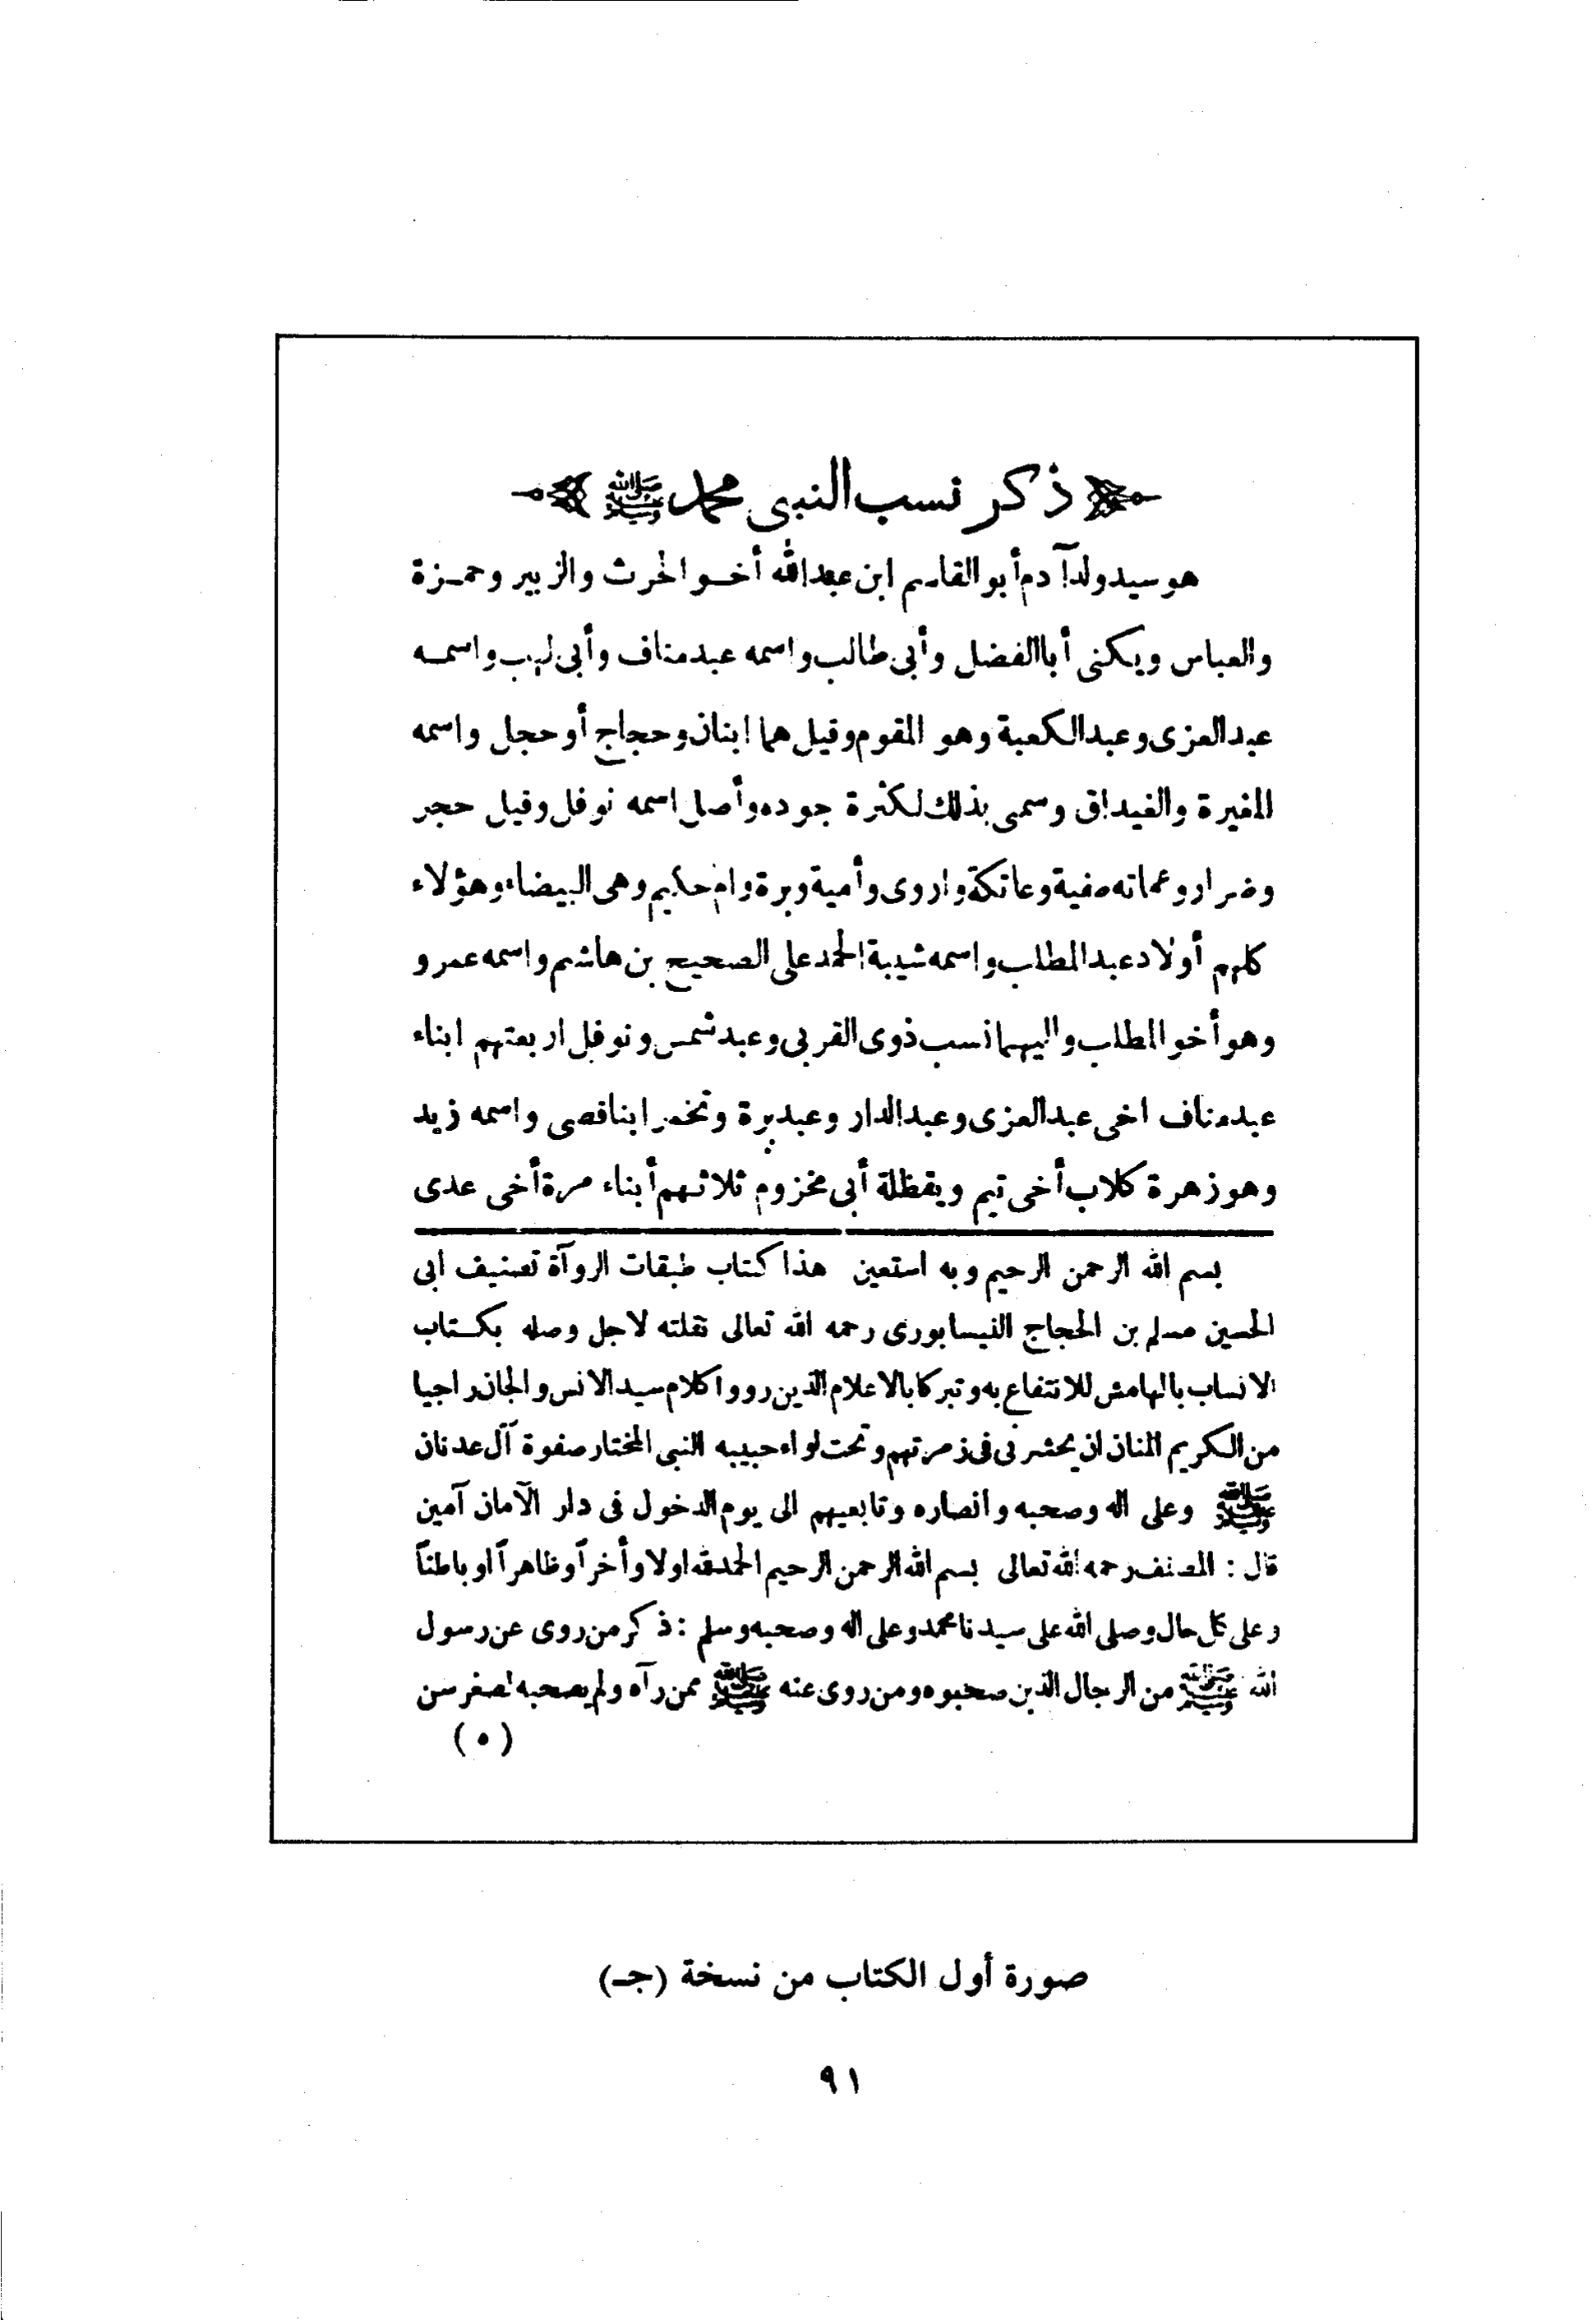 ذكر نسب النبى محمد ﷺ
هو سيد ولد آدم أبو القاسم ابن عبدالله أخو الحرث والزبير وحمزة
والعباس ويكنى أبا الفضل وأبى طالب واسمه عبد مناف وأبى لهب واسمه
عبد العزى وعبد الكعبة وهو المقوم وقيل هما ابنان وحجاج أو حجل واسمه
المغيرة والغيداق وسمى بذلك لكثرة جوده وأصل اسمه نوفل وقيل حجر
وضرار وعماته صفية وعاتكة واروى وأمية وبرة وام حكيم وهى البيضاء وهؤلاء
كلهم أولاد عبد المطلب واسمه شيبة الحمد على الصحيح بن هاشم واسمه عمرو
وهو أخو المطلب واليهما نسب ذوى القربى وعبد شمس ونوفل اربعتهم ابناء
عبد مناف اخى عبد العزى وعبد الدار وعبد برة وتخمر ابنا قصى واسمه زيد
وهو زهرة كلاب أخى تيم ويقظلة أبى مخزوم ثلاثهم أبناء مرة أخى عدى
بسم الله الرحمن الرحيم وبه استعين هذا كتاب طبقات الروآة تصنيف ابى
الحسين مسلم بن الحجاج النيسابورى رحمه الله تعالى نقلته لاجل وصله بكتاب
الانساب بالهامش للانتفاع به وتبركا بالاعلام الذين رووا كلام سيد الانس والجان راجيا
من الكريم المنان ان يحشرنى فى زمرتهم وتحت لواء حبيبه النبى المختار صفوة آل عدنان
ﷺ وعلى اله وصحبه وانصاره وتابعيهم الى يوم الدخول فى دار الآمان آمين
قال : المصنف رحمه الله تعالى بسم الله الرحمن الرحيم الحمدلله اولا وأخرآ وظاهرآ او باطنآ
وعلى كل حال وصلى الله على سيدنا محمد وعلى اله وصحبه وسلم : ذكر من روى عن رسول
الله ﷺ من الرجال الذين صحبوه ومن روى عنه ﷺ ممن رآه ولم يصحبه لصغر سن
(٥)
صورة أول الكتاب من نسخة (جـ)
٩١